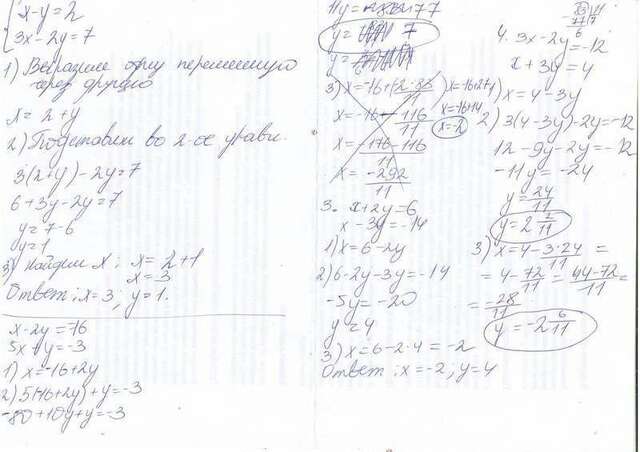 x-y=2
3x-2y=7
1) Выразиле одну переменную
через другую
x=2+y
2) Подставим во 2-ое уравн.
3(2+y)-2y=7
6+3y-2y=7
y=7-6
y=1
3) Найдём x: x=2+1
x=3
Ответ: x=3; y=1.
x-2y=-16
5x+y=-3
1) x=-16+2y
2) 5(-16+2y)+y=-3
-80+10y+y=-3
11y=77
y= 7
y=
3) x=-16+
x=-16+2·7
x=-16-116
11
x=-16+14
x=-2
x=-176-116
11
x=-292
11
3. x+2y=6
x-3y=-14
1) x=6-2y
2) 6-2y-3y=-14
-5y=-20
y=4
3) x=6-2·4=-2
Ответ: x=-2; y=4
4. 3x-2y=-12
x+3y=4
1) x=4-3y
2) 3(4-3y)-2y=-12
12-9y-2y=-12
-11y=-24
y=24
11
y=2 2
11
3) x=4-3·24=
11
=4-72=44-72=
11 11
=-28
11
y=-2 6
11